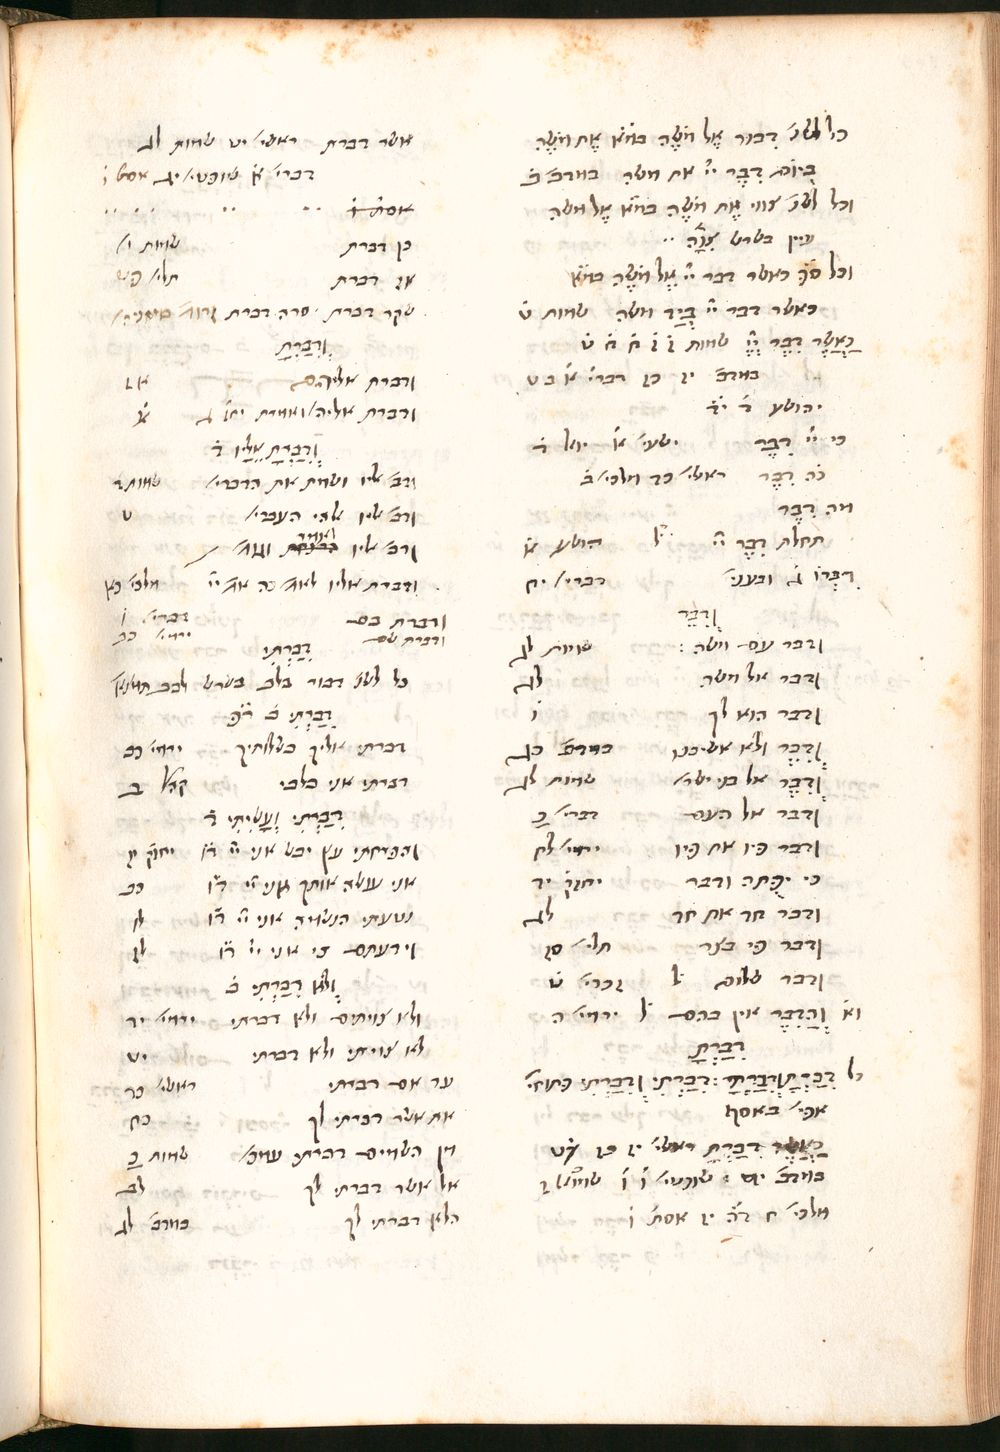 כל לשנ׳ דבור אֶל מֹשֶׁה במ״א אֶת מֹשֶׁה
בְּיוֹם דִּבֶּר יי׳ את משה במדב׳ ג
וכל לשנ׳ צווי אֶת מֹשֶׁה במ״א אֶל משה
עיין בשרש צִוָּה
וכל ס״פ כאשר דבר יי׳ אֶל מֹשֶׁה במ״א
כאשר דבר יי׳ בְּיַד משה שמות ט
כַּאֲשֶׁר דִּבֶּר יי׳ שמות ז ז ח ח ט
במדב׳ יז כז דברי׳ א ב ט
יהושע ד יד
כי יי׳ דִבֶּר ישעי׳ א יואל ד
כֹּה דִבֶּר ראשי׳ כד מלכי׳ ב
מה דִּבֶּר
תחלת דִּבֶּר יי׳ ל׳ הושע א
דִּבְּרוֹ ג ובעני׳ דברי׳ יח
וְדִבֶּר
ודבר עם משה : שמות לג
ודבר אל משה לג
ודבר הוא לך ז
וְדִבֶּר ולא אשיבנו במדב׳ כג
וְדִבֶּר אל בני ישר׳ שמות לג
ודבר אל העם דברי׳ כ
ודבר פיו את פיו ירמי׳ לב
כי יְפֻתֶּה ודבר יחזק׳ יד
ודבר חד את חד לג
ודבר פי בצר תלי׳ סו
ודבר שלום ל׳ זכרי׳ ט
וא׳ וְהַדִּבֵּר אין בהם ל׳ ירמי׳ ה
דִּבַּרְתָּ
כל דִּבַּרְתָּ וְדִבַּרְתָּ : דִּבַּרְתִּי וְדִבַּרְתִּי פתוחי׳
אפי׳ באסף
כַּאֲשֶׁר דִּבַּרְתָּ ראשי׳ יז כז
במדב׳ יד : שופטי׳ ו ו
מלכי׳ ח ד״ה יז אסת׳ ו
אשר דברת ראשי׳ יט שמות לג
דברי׳ א שופטי׳ יג אסת׳ ו
אסת׳ ו
כן דברת שמות י
אז דברת תלי׳ פט
שקר דברת. סרה דברת
וְדִבַּרְתָּ
ודברת אליהם
ודברת אליה׳ ואמרת
וְדִבַּרְתָּ אֵלָיו ד
ודב׳ אליו ושמת את הדברי׳ שמות ד
ודב׳ אליו אלהי העברי׳ ט
ודב׳ אליו לאמר
ודברת אליו לאמ׳ כה אמ׳ יי׳ מלכי׳ כא
ודברת בם דברי׳ ו
ודברת שם ירמי׳ כב
דִּבַּרְתִּי
כל לשנ׳ דבור בלב בשרש לבב
דִּבַּרְתִּי ב ר״פ
דברתי אליך בשלותיך ירמי׳ כב
דברתי אני בלבי קהל׳ ב
דִּבַּרְתִּי וְעָשִׂיתִי ד
והפרחתי עץ יבש אני יי׳ ד״ו יחזק׳ יז
אני עושה אותך אני יי׳ ד״ו כב
נטעתי הנשמה אני יי׳ ד״ו לו
וידעתם כי אני יי׳ ד״ו לז
וְלֹא דִבַּרְתִּי ב
ולא צויתים ולא דברתי ירמי׳ יד
לא צויתי ולא דברתי יט
עד אם דברתי ראשי׳ כד
את אשר דברתי לך כח
מן השמים דברתי עמכ׳ שמות כ
אל אשר דברתי לך לב
הלא דברתי לך במדב׳ לג